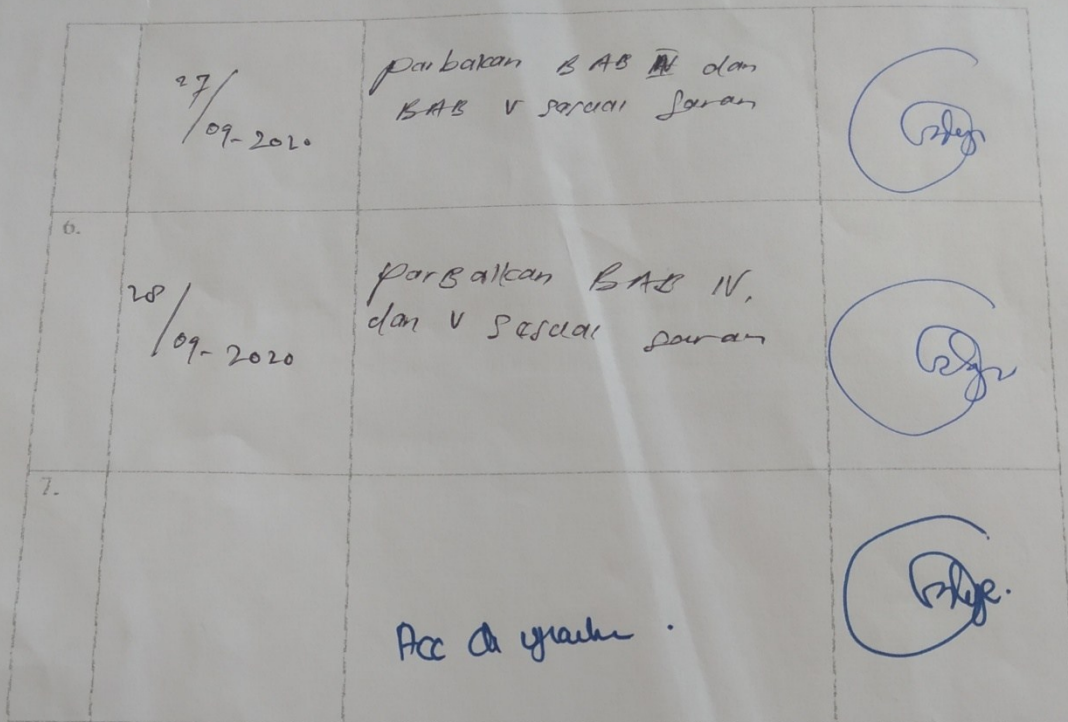 27/09-2020
parbakan BAB IV dan
BAB V sasuai saran
6.
28/09-2020
parbaikan BAB IV,
dan V sesuai saran
7.
Acc di